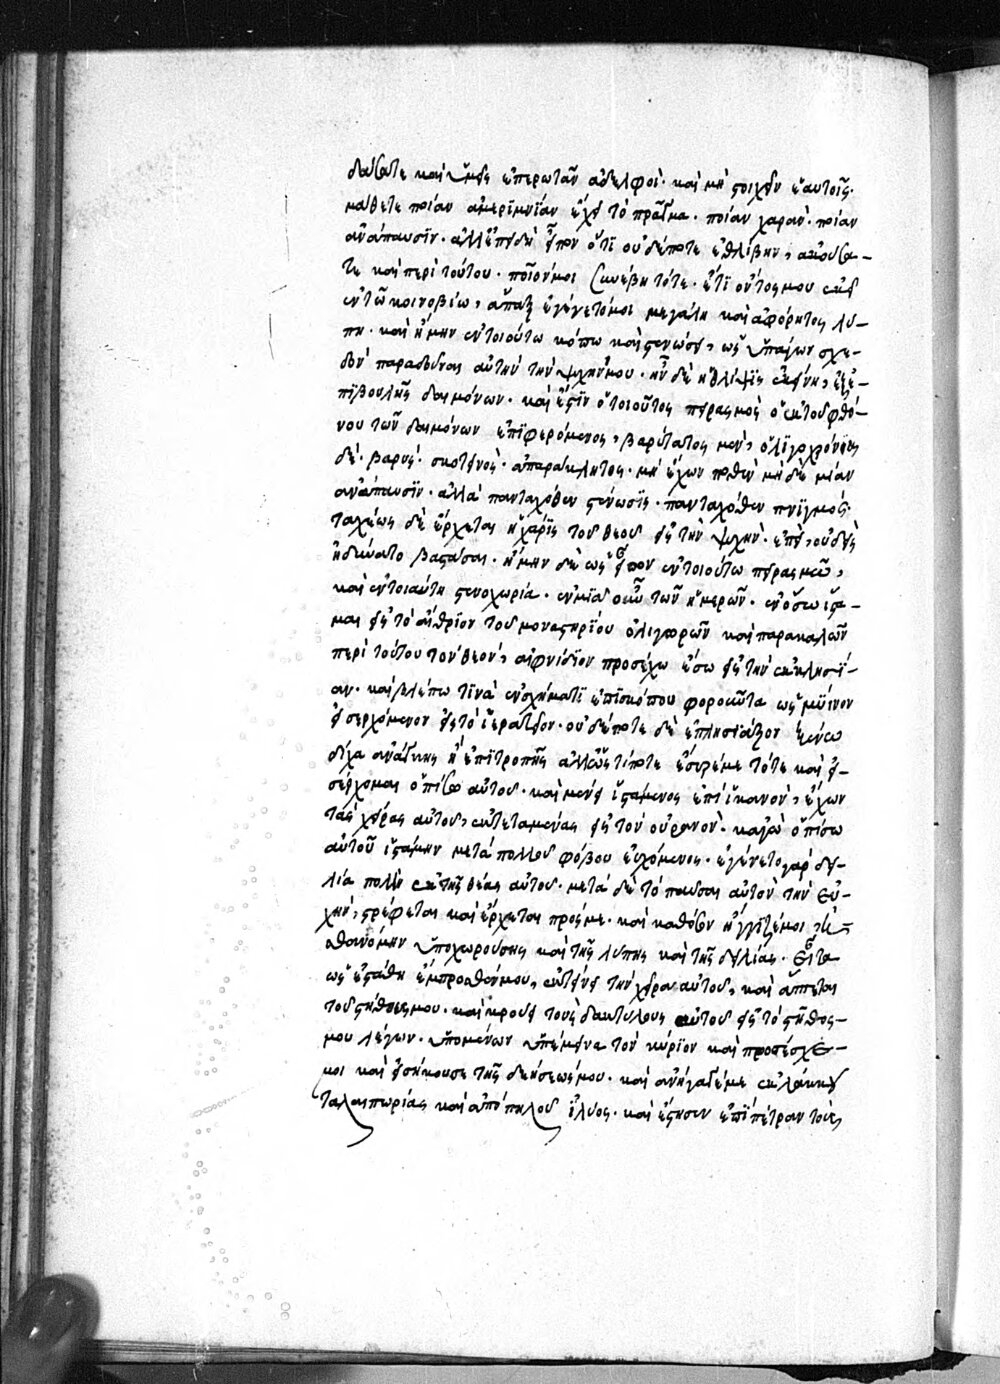 δάξατε καὶ ὑμᾶς ἐπερωτᾶν ἀδελφοὶ· καὶ μὴ στοιχεῖν ἑαυτοῖς·
μάθετε ποίαν ἀμεριμνίαν ἔχει τὸ πρᾶγμα· ποίαν χαρὰν· ποίαν
ἀνάπαυσιν· ἀλλ' ἐπειδὴ εἶπον ὅτι οὐδέποτε ἐθλίβην, ἀκούσα-
τε καὶ περὶ τούτου· ποῖόν μοι συνέβη τότε· ἔτι ὄντος μου ἐκεῖ
ἐν τῶ κοινοβίω, ἅπαξ ἐγένετό μοι μεγάλη καὶ ἀφόρητος λύ-
πη· καὶ ἤμην ἐν τοιούτω κόπω καὶ στενώσει, ὡς ὑπάγων σχε-
δὸν παραδοῦναι αὐτὴν τὴν ψυχήν μου· ἦν δὲ ἡ θλίψις ἐκείνη, ἐξ ἐ-
πιβουλῆς δαιμόνων· καὶ ἔστιν ὁ τοιοῦτος πειρασμὸς ὁ ἐκ τοῦ φθό-
νου τῶν δαιμόνων ἐπιφερόμενος, βαρύτατος μὲν, ὀλιγοχρόνιος
δέ· βαρὺς· σκοτεινὸς· ἀπαράκλητος· μὴ ἔχων ποθὲν μηδεμίαν
ἀνάπαυσιν· ἀλλὰ πανταχόθεν στένωσις· πανταχόθεν πνιγμός·
ταχέως δὲ ἔρχεται ἡ χάρις τοῦ θεοῦ εἰς τὴν ψυχὴν· ἐπεὶ, οὐδεὶς
ἠδύνατο βαστάσαι· ἤμην δὲ ὡς εἶπον ἐν τοιούτω πειρασμῶ,
καὶ ἐν τοιαύτη στενοχωρία· ἐν μιᾶ οὖν τῶν ἡμερῶν· ἐν ὅσω ἵστα-
μαι εἰς τὸ αἴθριον τοῦ μοναστηρίου ὀλιγωρῶν καὶ παρακαλῶν
περὶ τούτου τὸν θεὸν, αἰφνίδιον προσέχω ἔσω εἰς τὴν ἐκκλησί-
αν· καὶ βλέπω τινὰ ἐν σχήματι ἐπισκόπου φοροῦντα ὡς μύινον
εἰσερχόμενον εἰς τὸ ἱερατεῖον· οὐδέποτε δὲ ἐπλησίαζον ξένω
δίχα ἀνάγκης ἢ ἐπιτροπῆς ἀλλ' ὥς τί ποτε ἔσυρέ με τότε καὶ εἰ-
σέρχομαι ὀπίσω αὐτοῦ· καὶ μένει ἱστάμενος ἐπὶ ἱκανὸν, ἔχων
τὰς χεῖρας αὐτοῦ, ἐκτεταμένας εἰς τὸν οὐρανὸν· κἀγὼ ὀπίσω
αὐτοῦ ἱστάμην μετὰ πολλοῦ φόβου εὐχόμενος· ἐγένετο γάρ δει-
λία πολλὴ ἐκ τῆς θέας αὐτοῦ· μετὰ δὲ τὸ παῦσαι αὐτὸν τὴν εὐ-
χὴν, στρέφεται καὶ ἔρχεται πρός με· καὶ καθόσον ἤγγιζέ μοι, ἠ-
σθανόμην ὑποχωρούσης καὶ τῆς λύπης καὶ τῆς δειλίας· εἶτα
ὡς ἐστάθη ἔμπροσθέν μου, ἐκτείνει τὴν χεῖρα αὐτοῦ, καὶ ἅπτεται
τοῦ στήθους μου· καὶ κρούει τοὺς δακτύλους αὐτοῦ εἰς τὸ στῆθος
μου λέγων· ὑπομένων ὑπέμεινα τὸν κύριον καὶ προσέσχε
μοι καὶ εἰσήκουσε τῆς δεήσεώς μου· καὶ ἀνήγαγέ με ἐκ λάκκου
ταλαιπωρίας καὶ ἀπὸ πηλοῦ ἰλύος· καὶ ἔστησεν ἐπὶ πέτραν τοὺς